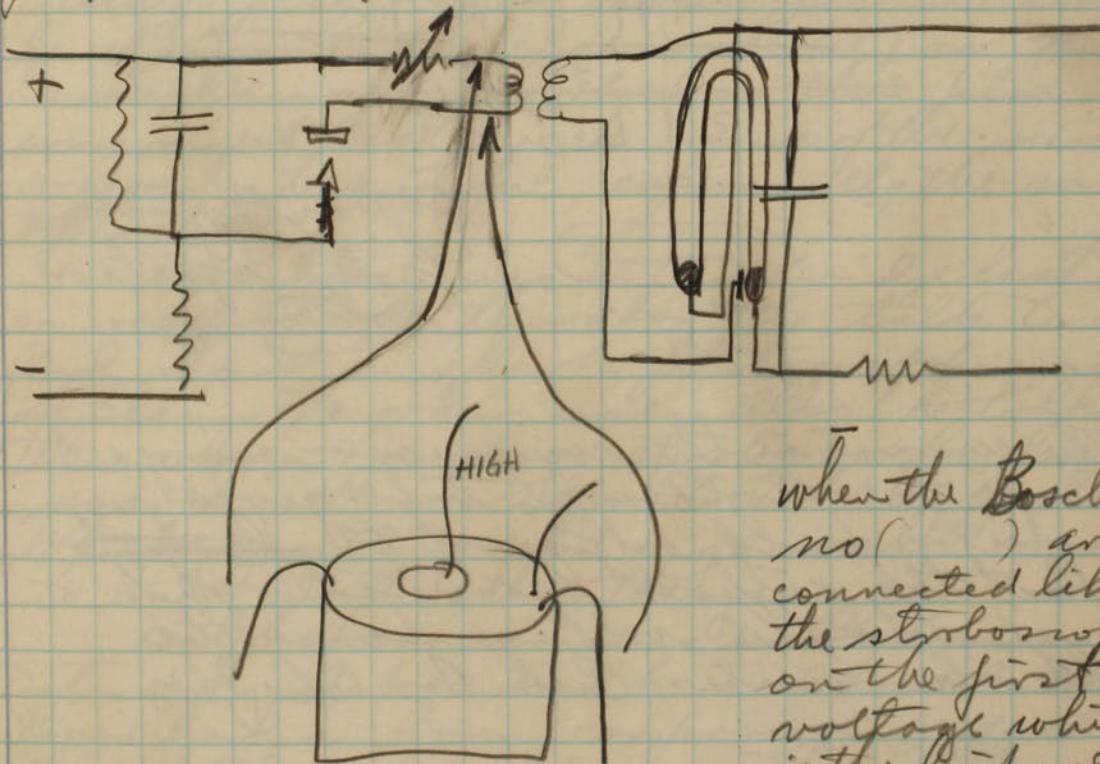 +
-
HIGH
when the Bosch
no( ) ar
connected lik
the strobosco
on the first
voltage whi